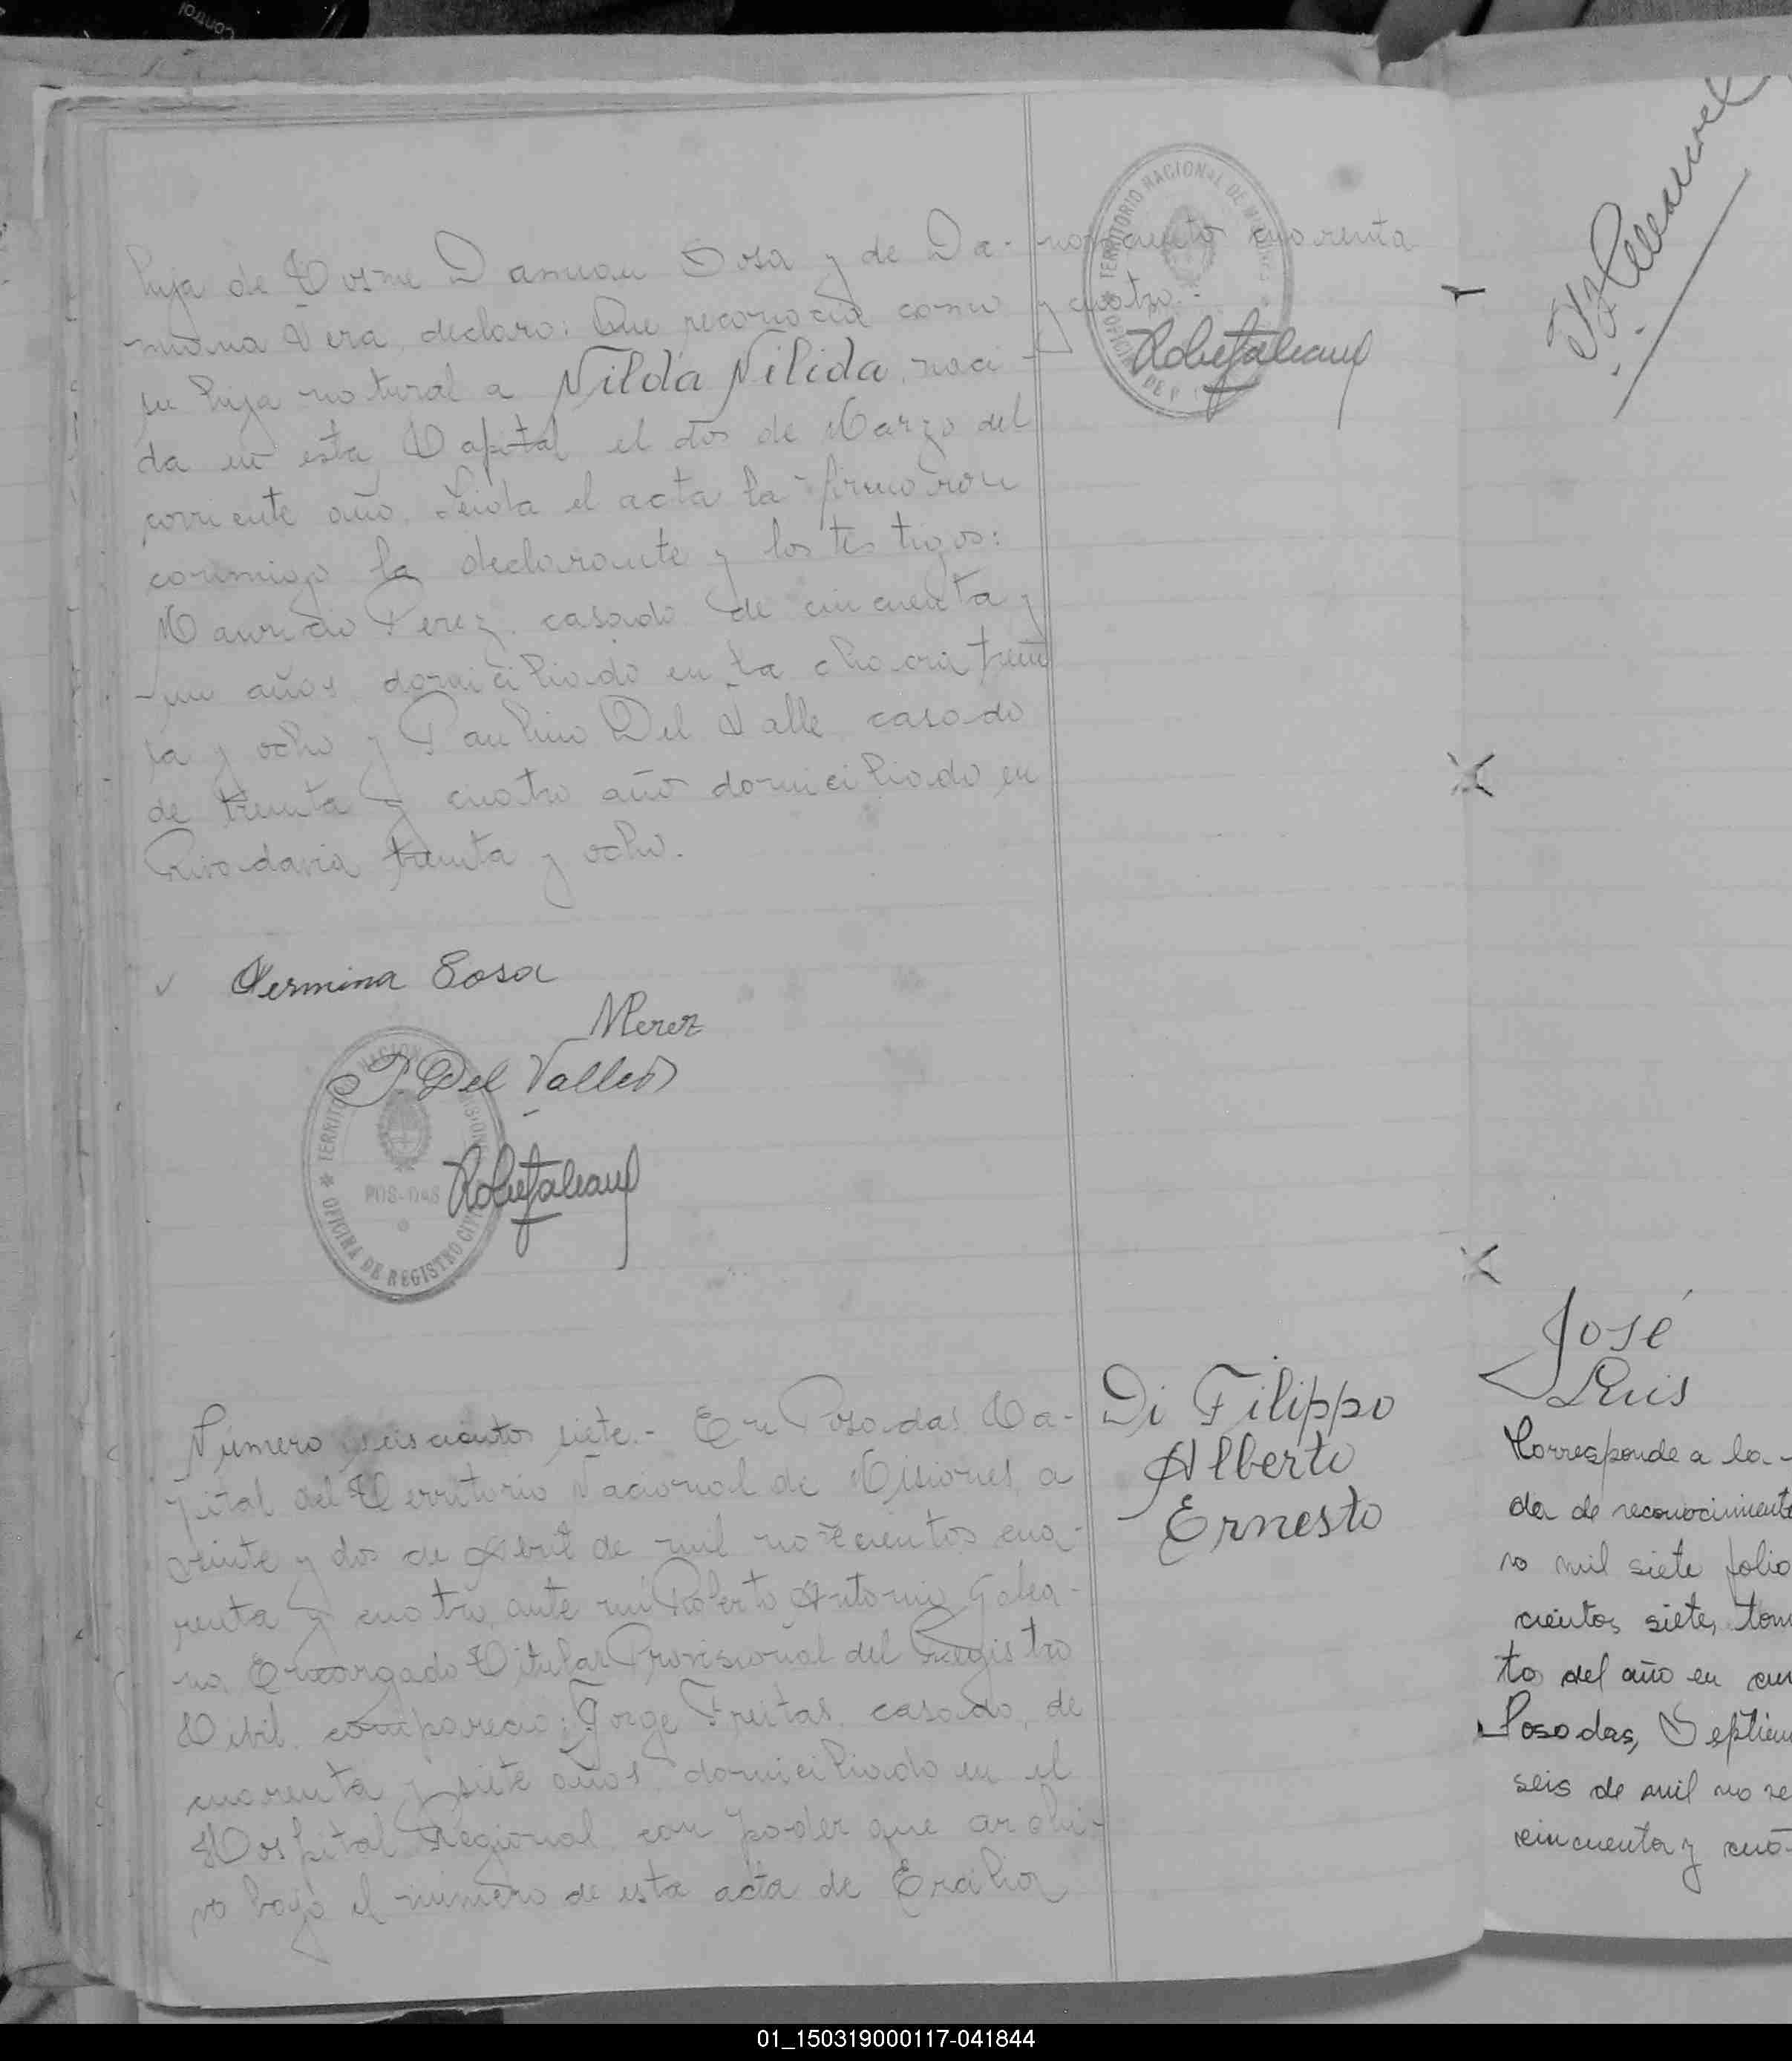 hija de Cosme Damian Sosa y de Da-
miana Vera, declaro: Que reconocia como
su hija natural a Nilda Nélida, naci-
da en esta Capital el dos de Marzo del
corriente año. Leida el acta la firmaron
conmigo la declarante y los testigos:
Mauricio Perez, casado de cincuenta y
un años, domiciliado en la chacra trein
ta y ocho y Paulino Del Valle, casado
de treinta y cuatro años domiciliado en
Rivadavia treinta y ocho.
novecientos cuarenta
y cuatro.-
TERRITORIO NACIONAL DE MISIONES
Hermina Sosa
MPerez
P. Del Valle
TERRITORIO NACIONAL MISIONES
POSADAS
OFICINA DE REGISTRO CIVIL
Número seiscientos siete.- En Posadas Ca-
pital del Territorio Nacional de Misiones, a
veinte y dos de Abril de mil novecientos cua-
renta y cuatro, ante mi Roberto Antonio Galea-
no, Encargado Titular Provisional del Registro
Civil, comparecio: Jorge Freitas, casado, de
cuarenta y siete años, domiciliado en el
Hospital Regional, con poder que archi-
vo bajo el número de esta acta de
Di Filippo
Alberto
Ernesto
José
Luis
Corresponde a la-
da de reconocimiento
ro mil siete folio
cientos siete, tom
to del año en cur
Posadas, Septiem
seis de mil nove
cincuenta y cua-
01_150319000117-041844